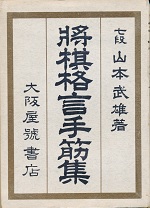 七段 山本武雄著
將棋格言手筋集
大阪屋號書店